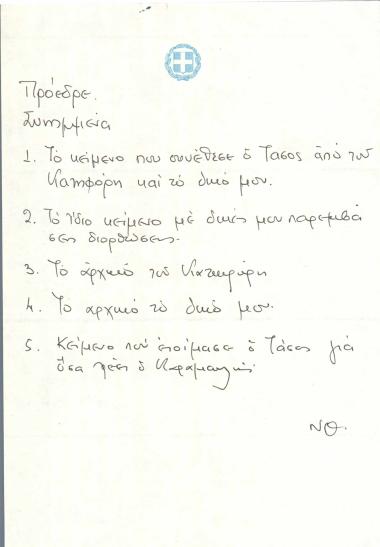 Πρόεδρε.
Συνημμένα
1. Τό κείμενο που συνέθεσε ὁ Τάσος ἀπό τοῦ
Κατηφόρη καί τό δικό μου.
2. Τό ἴδιο κείμενο μέ δικές μου παρεμβά
σεις διορθώσεις.
3. Τό ἀρχικό τοῦ Κατηφόρη
4. Τό αρχικό τό δικό μου.
5. Κείμενο πού ἑτοίμασε ὁ Τάσος γιά
ὅσα λέει ὁ Καραμανλής
ΝΘ.